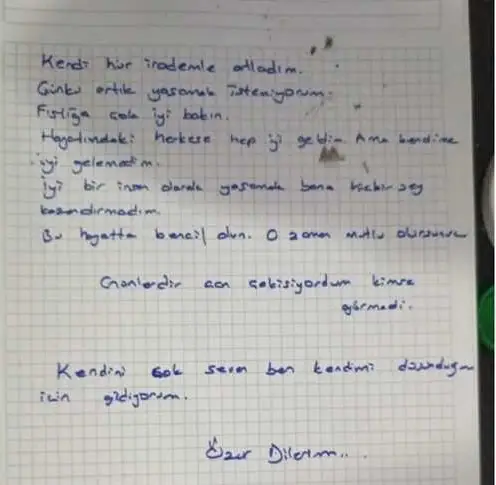 Kendi hür irademle atladım.
Çünkü artık yaşamak istemiyorum.
Fıstığa çok iyi bakın.
Hayatımdaki herkese hep iyi geldim. Ama kendime
iyi gelemedim.
İyi bir insan olarak yaşamak bana hiçbir şey
kazandırmadı.
Bu hayatta bencil olun. O zaman mutlu olursunuz
acı çekiyordum kimse
görmedi.
Kendini çok seven ben kendimi
için gidiyorum.
Özür Dilerim...